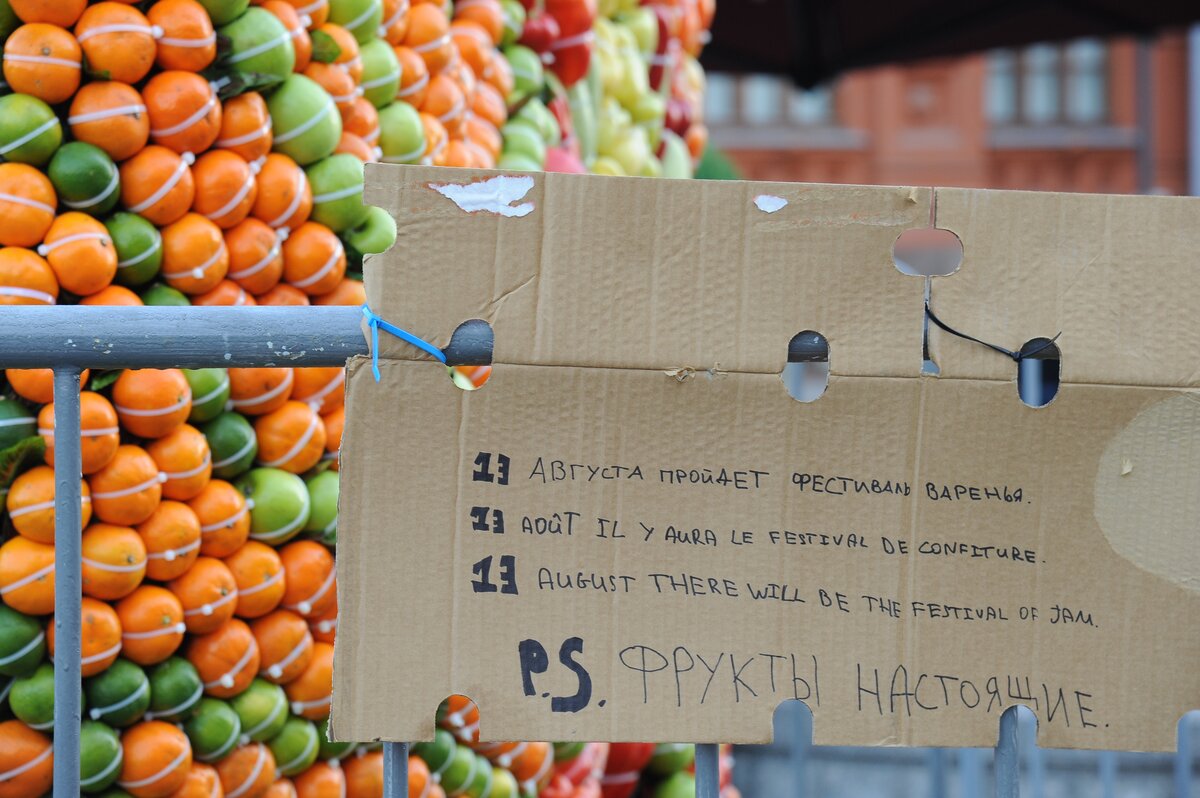 13 АВГУСТА ПРОЙДЕТ ФЕСТИВАЛЬ ВАРЕНЬЯ.
13 AOÛT IL Y AURA LE FESTIVAL DE CONFITURE.
13 AUGUST THERE WILL BE THE FESTIVAL OF JAM.
P.S. ФРУКТЫ НАСТОЯЩИЕ.